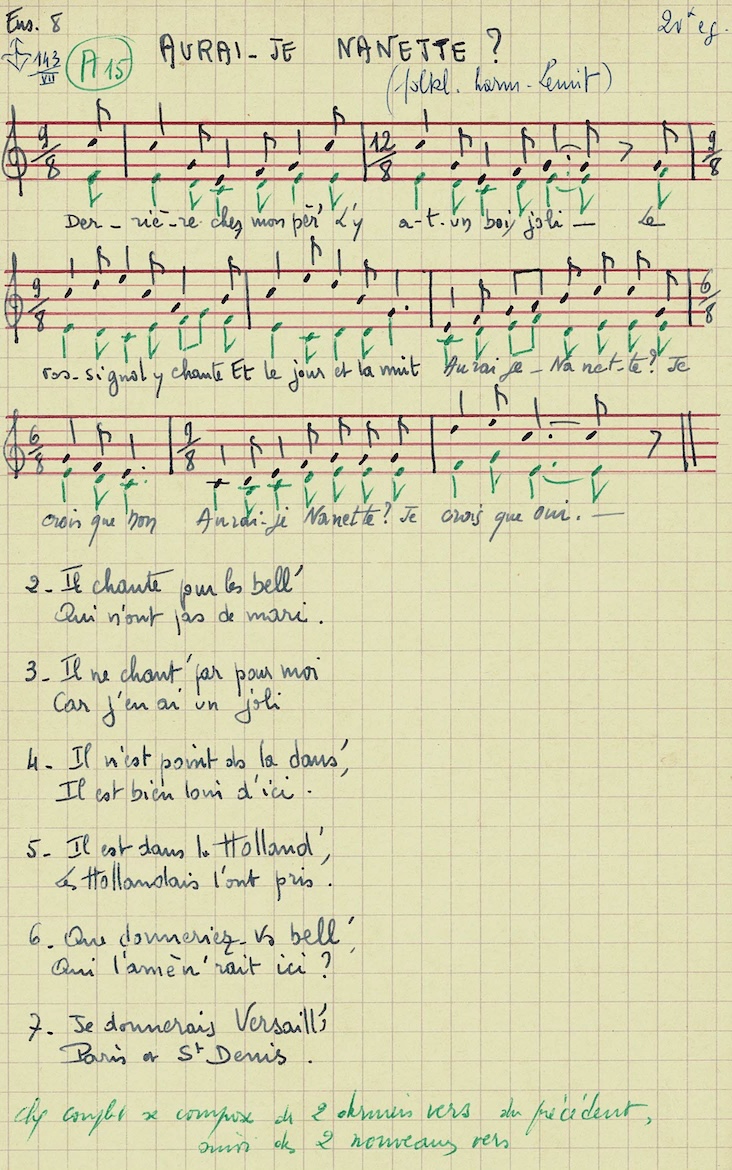 Ens. 8
2v x eg.
143
VII
A 15
AURAI-JE NANETTE ?
(folkl. harm. Lemit)
9/8 12/8 9/8
Der - riè-re chez mon pèr' L'y a-t-un bois joli — Le
9/8 6/8
ros-signol y chante Et le jour et la nuit Aurai je - Na net-te? Je
6/8 9/8
crois que non Aurai-je Nanette? Je crois que oui. —
2- Il chante pour les bell'
Qui n'ont pas de mari.
3- Il ne chant' par pour moi
Car j'en ai un joli
4- Il n'est point ds la dans',
Il est bien loin d'ici.
5- Il est dans la Holland',
Les Hollandais l'ont pris.
6- Que donneriez-vs bell'
Qui l'amèn'rait ici ?
7- Je donnerais Versaill',
Paris et St Denis.
chq couplet se compose des 2 derniers vers du précédent,
suivi des 2 nouveaux vers